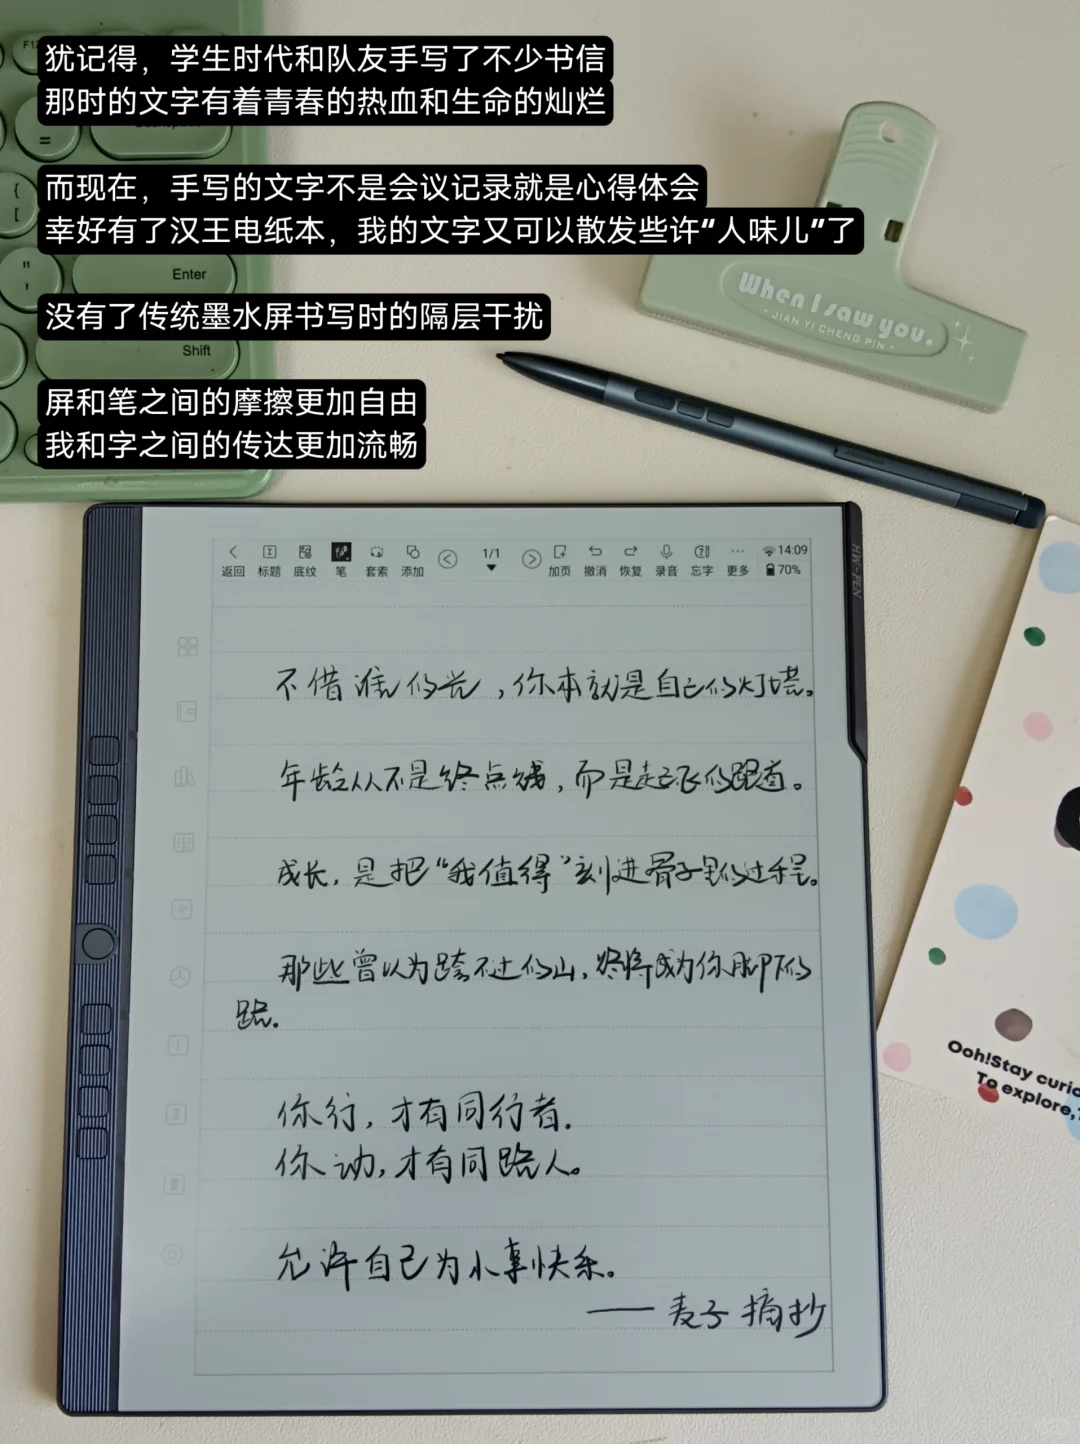 犹记得，学生时代和队友手写了不少书信
那时的文字有着青春的热血和生命的灿烂
而现在，手写的文字不是会议记录就是心得体会
幸好有了汉王电纸本，我的文字又可以散发些许“人味儿”了
没有了传统墨水屏书写时的隔层干扰
屏和笔之间的摩擦更加自由
我和字之间的传达更加流畅
=
{
[
"
'
Enter
Shift
When I saw you.
· JIAN YI CHENG PIN ·
HW-PEN
返回 标题 底纹 笔 套索 添加 1/1 加页 撤消 恢复 录音 忘字 更多 14:09 70%
不借谁的光，你本就是自己的灯塔。
年龄从不是终点线，而是起飞的跑道。
成长，是把“我值得”刻进骨子里的过程。
那些曾以为跨不过的山，终将成为你脚下的
路。
你行，才有同行者。
你动，才有同路人。
允许自己为小事快乐。
—— 麦子 摘抄
Ooh!Stay curio
To explore,